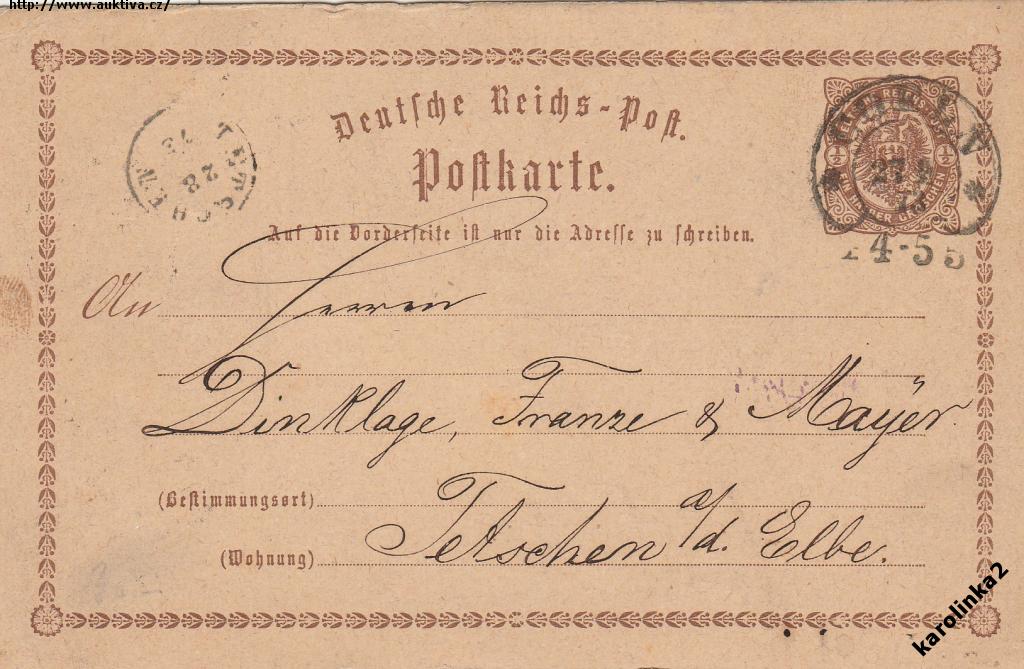 http://www.auktiva.cz/
Deutsche Reichs-Post.
Postkarte.
Auf die Vorderseite ist nur die Adresse zu schreiben.
TETSCHEN
28
73
27
4-5
An Herrn
Dinklage, Franze & Mayer
(Bestimmungsort) Tetschen a/d. Elbe.
(Wohnung)
karolinka2